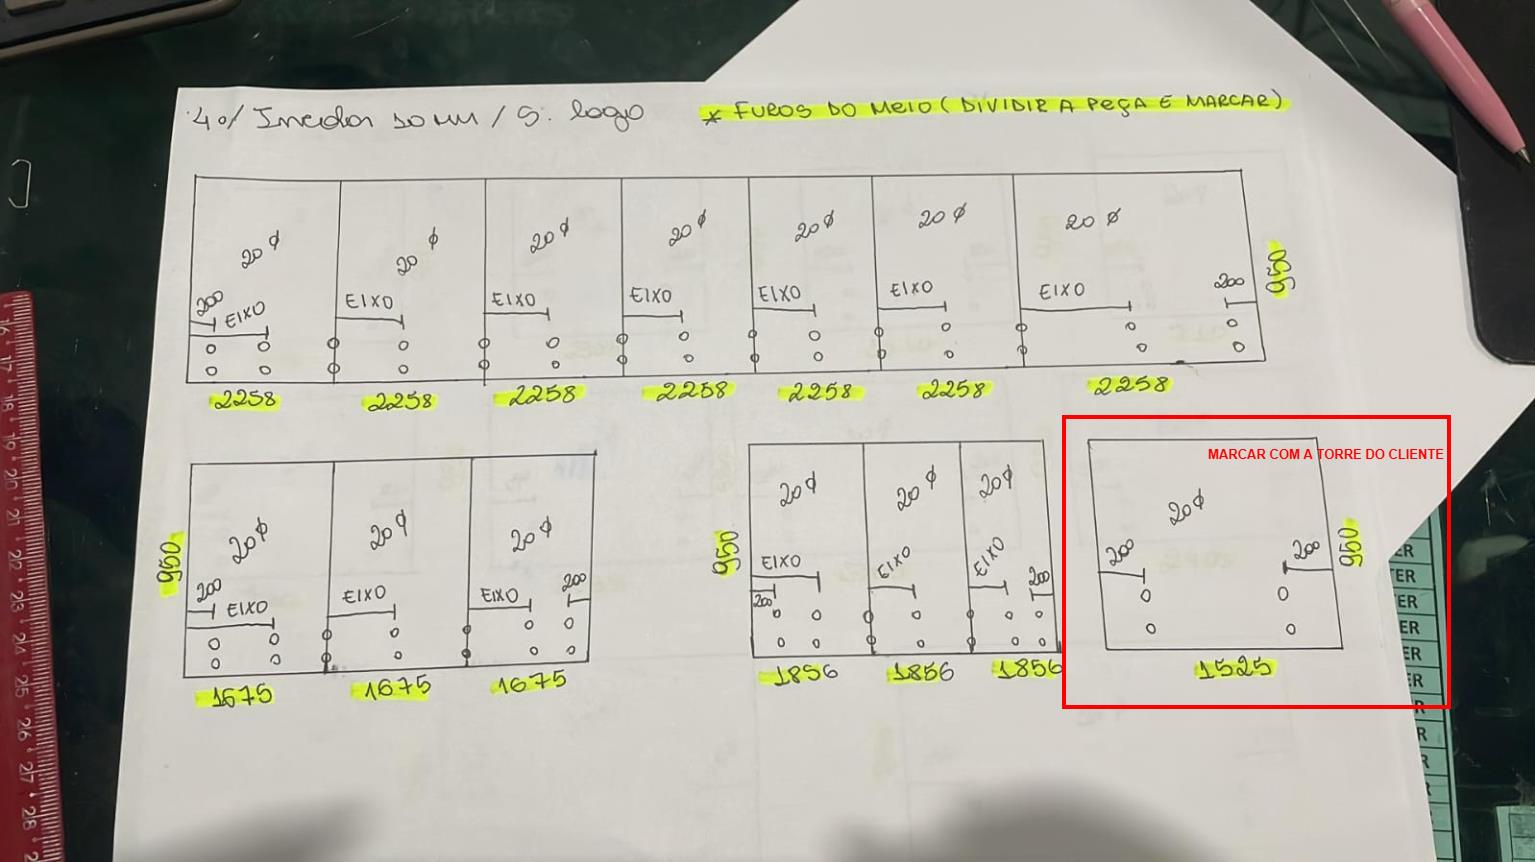 * FUROS DO MEIO (DIVIDIR A PEÇA E MARCAR)
20 ϕ 20 ϕ 20 ϕ 20 ϕ 20 ϕ 20 ϕ 20 ϕ
200 EIXO EIXO EIXO EIXO EIXO EIXO EIXO 200
950
2258 2258 2258 2258 2258 2258 2258
20 ϕ 20 ϕ 20 ϕ
950
200 EIXO EIXO EIXO 200
1675 1675 1675
20 ϕ 20 ϕ 20 ϕ
950
EIXO EIXO EIXO
200 200
1856 1856 1856
MARCAR COM A TORRE DO CLIENTE
20 ϕ
200 200
950
1525
16 17 18 19 20 21 22 23 24 25 26 27 28
ER
TER
ER
ER
ER
ER
R
R
R